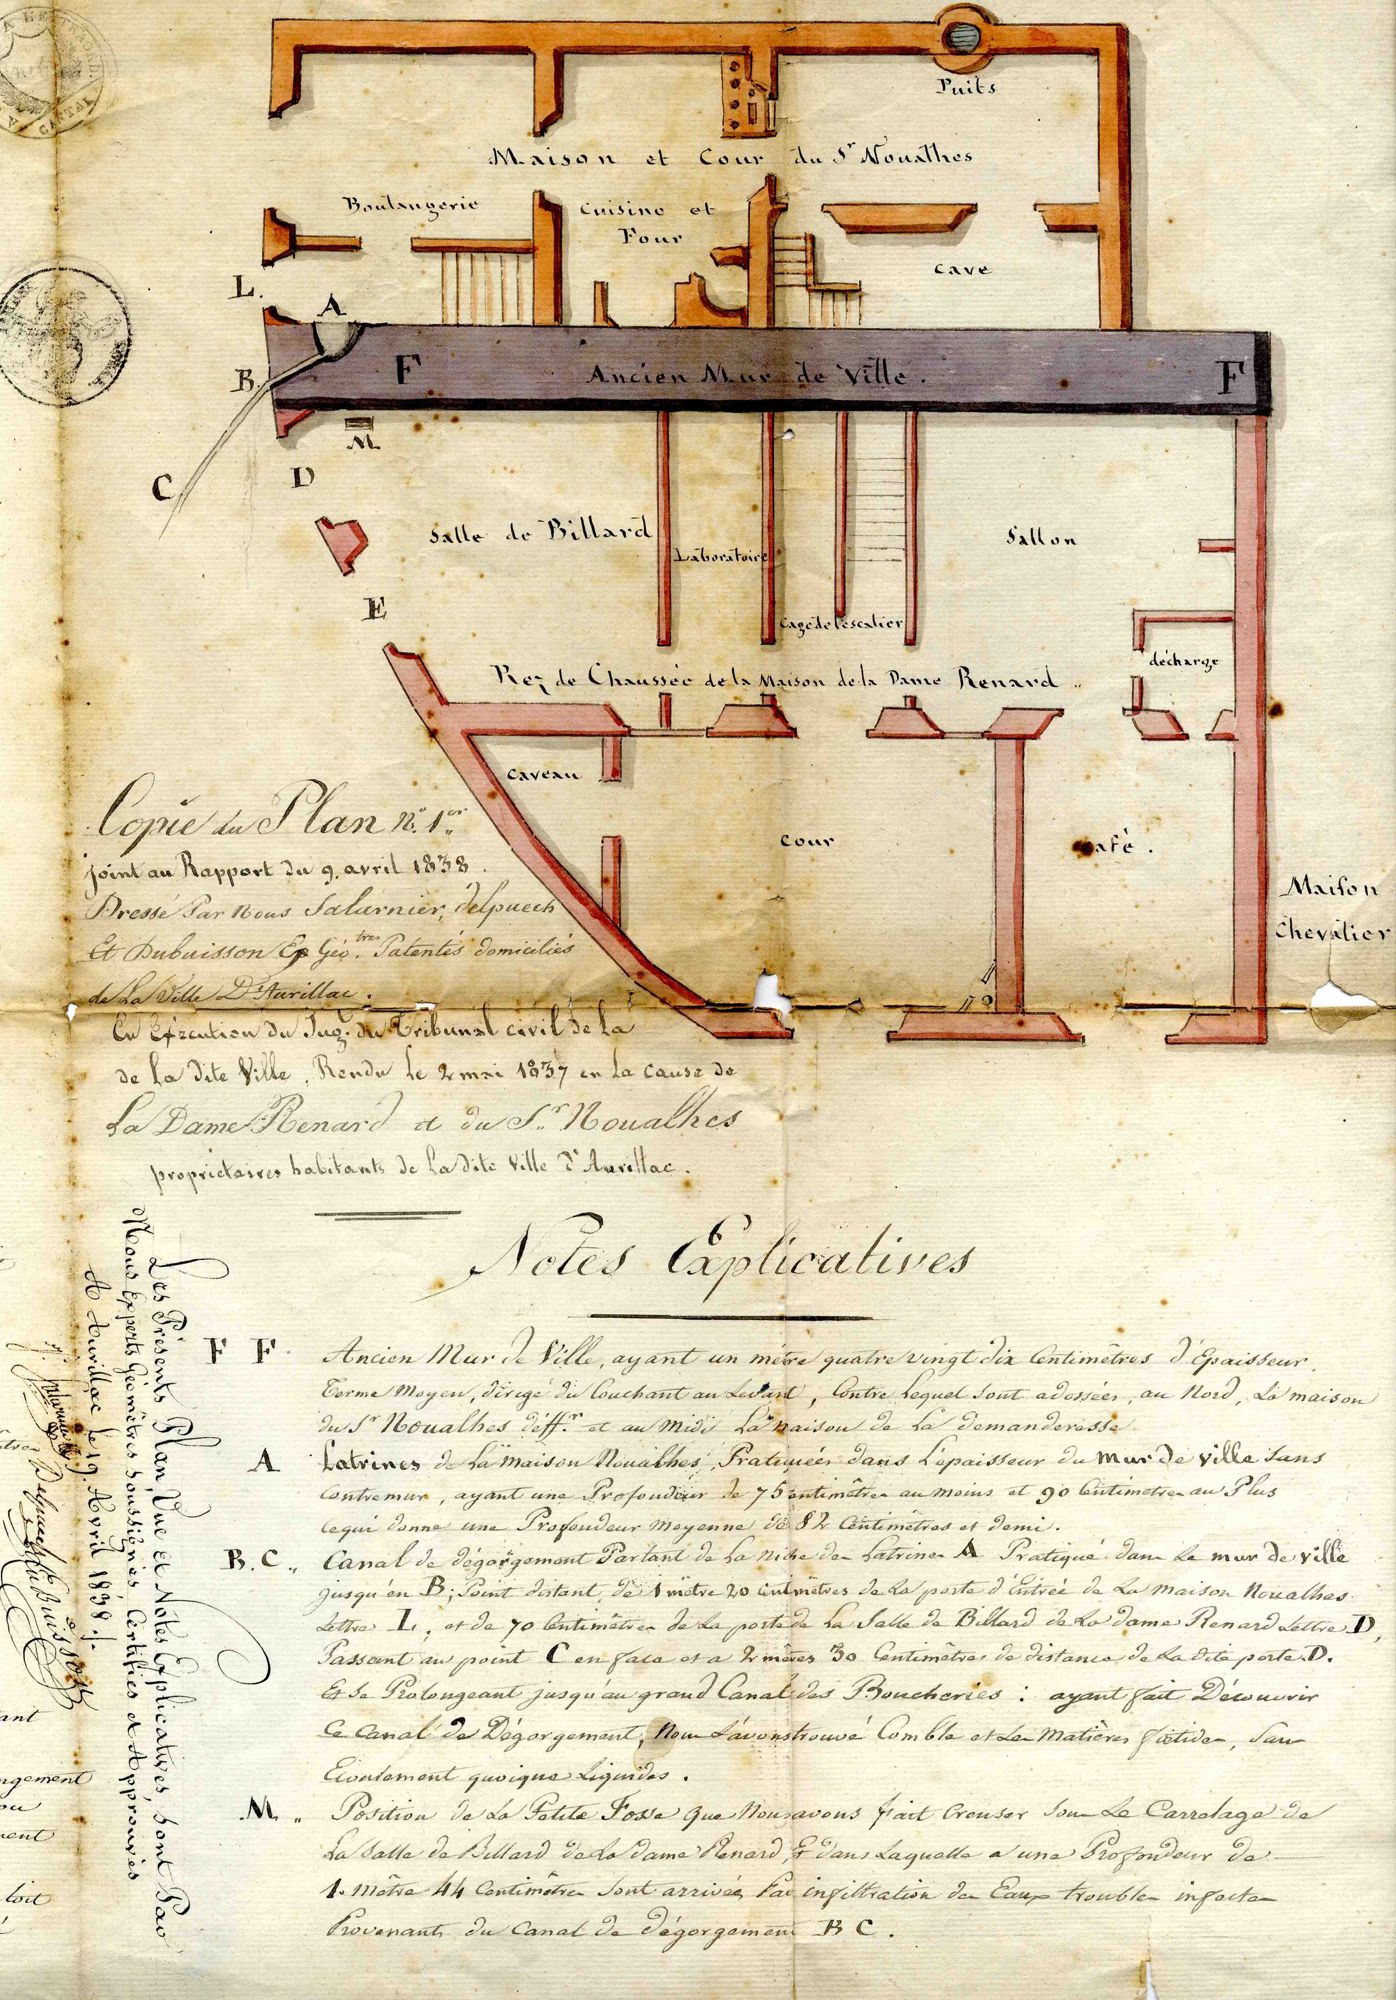 Puits
Maison et Cour du Sr Noualhes
Boulangerie
Cuisine et
Four
Cave
L.
A
B
F
Ancien Mur de Ville.
F
M
C
D
Salle de Billard
Laboratoire
Sallon
E
Cage de l'escalier
décharge
Rez de Chaussée de la Maison de la Dame Renard
Caveau
Cour
afé.
Maison
Chevalier
Copie du Plan No. 1er
joint au Rapport du 9. avril 1838.
Dressé Par Nous Salarnier, delpuech
Et Dubuisson Ex Géo.tres Patentés domiciliés
de La Ville D'Aurillac.
En Exécution du Jugt du Tribunal civil de la
de La dite Ville, Rendu Le 2 mai 1837 en La cause de
La Dame Renard et du Sr Noualhes
propriétaires habitants de La dite Ville d'Aurillac.
Notes Explicatives
F F Ancien Mur de Ville, ayant un mètre quatre vingt dix Centimètres d'Epaisseur,
Terme Moyen, dirigé du Couchant au Levant, Contre Lequel sont adossées, au Nord, La maison
du Sr Noualhes déffr et au Midi La maison de La demanderesse
A Latrines de La maison Noualhes, Pratiquées dans L'épaisseur du mur de ville Sans
Contremur, ayant une Profondeur de 75 Centimètres au moins et 90 Centimètres au Plus
ce qui donne une Profondeur moyenne de 82 Centimètres et demi.
B. C. „ Canal de dégorgement Partant de La Niche des Latrines A Pratiqué dans Le mur de ville
jusqu'en B; Point distant, de 1 mètre 20 centimètres de La porte d'Entrée de La maison Noualhes
Lettre L, et de 70 Centimètres de La porte de La Salle de Billard de La dame Renard Lettre D,
Passant au point C en face et a 2 mètres 30 Centimètres de distance de La dite porte D.
Et se Prolongeant jusqu'au grand Canal des Boucheries : ayant fait Découvrir
Ce canal de Dégorgement, Nous L'avons trouvé Comble et Les Matières fœtides, sans
Ecoulement quoique Liquides.
M. „ Position de La Petite Fosse que Nous avons fait Creuser sous Le Carrelage de
La Salle de Billard de La dame Renard, & dans Laquelle a une Profondeur de
1. Mètre 44 Centimètres sont arrivées Par infiltration des Eaux troubles infectes
Provenants du Canal de dégorgement B C.
Les Présents Plan, Vue et Notes Explicatives, sont Par
Nous Experts Géomètres soussignés Certifiés et Approuvés
A Aurillac le 19. Avril 1838.
Delpuech
duBuisson
ngement